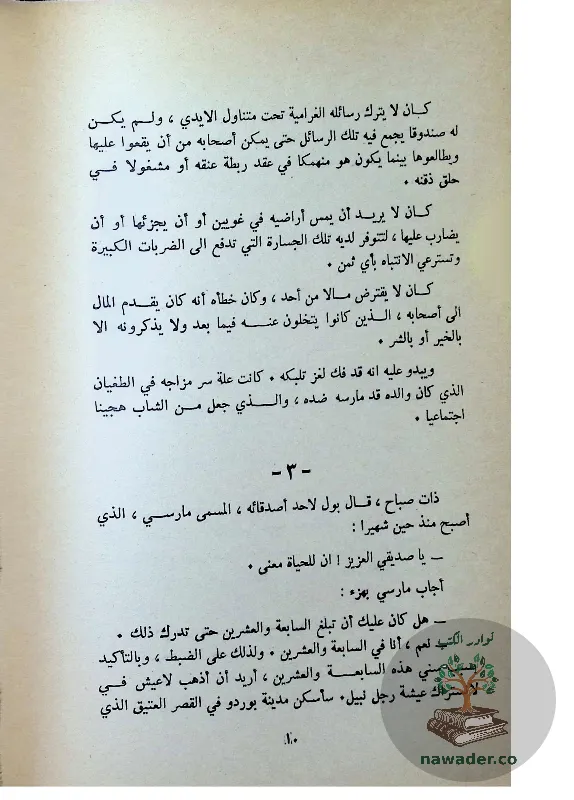 كان لا يترك رسائله الغرامية تحت متناول الايدي ، ولم يكن
له صندوقا يجمع فيه تلك الرسائل حتى يمكن أصحابه من أن يقعوا عليها
ويطالعوها بينما يكون هو منهمكا في عقد ربطة عنقه أو مشغولا في
حلق ذقنه .
كان لا يريد أن يمس أراضيه في غويين أو أن يجزئها أو أن
يضارب عليها ، لتتوفر لديه تلك الجسارة التي تدفع الى الضربات الكبيرة
وتسترعي الانتباه بأي ثمن .
كان لا يقترض مالا من أحد ، وكان خطأه أنه كان يقدم المال
الى أصحابه ، الذين كانوا يتخلون عنه فيما بعد ولا يذكرونه الا
بالخير أو بالشر .
ويبدو عليه انه قد فك لغز تلبكه . كانت علة سر مزاجه في الطغيان
الذي كان والده قد مارسه ضده ، والذي جعل من الشاب هجينا
اجتماعيا .
- ٣ -
ذات صباح ، قال بول لاحد أصدقائه ، المسمى مارسي ، الذي
أصبح منذ حين شهيرا :
ـ يا صديقي العزيز ! ان للحياة معنى .
أجاب مارسي بهزء :
ـ هل كان عليك أن تبلغ السابعة والعشرين حتى تدرك ذلك .
نعم ، أنا في السابعة والعشرين . ولذلك على الضبط ، وبالتأكيد
سني هذه السابعة والعشرين ، أريد أن أذهب لاعيش في
عيشة رجل نبيل . سأسكن مدينة بوردو في القصر العتيق الذي
١٠
نوادر الكتب
nawader.co